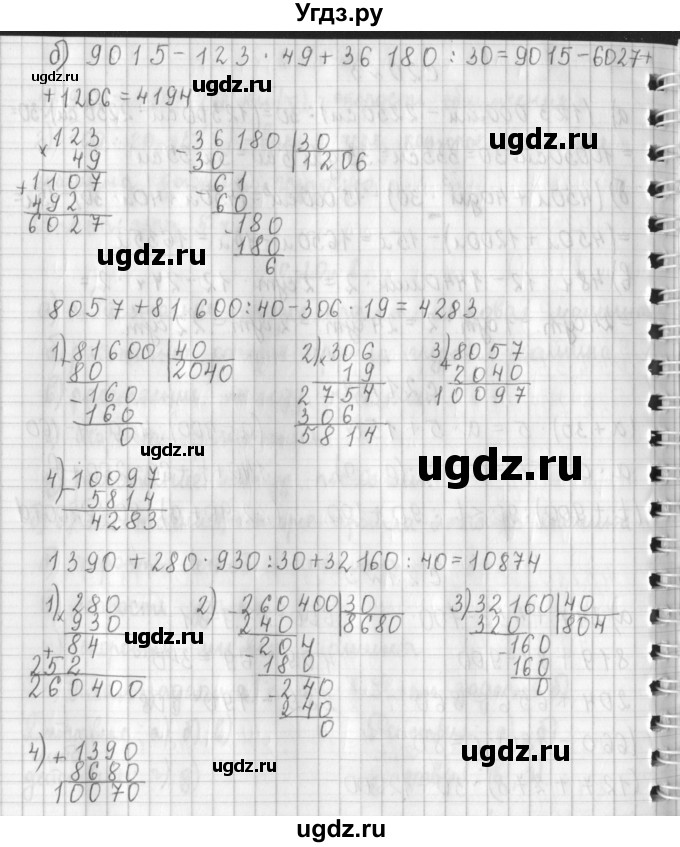 Угдз.ру
б) 9015 - 123 · 49 + 36 180 : 30 = 9015 - 6027 +
+ 1206 = 4194
ugdz.ru
× 123 - 36180 | 30
49 30 1206
+ 1107 - 61
492 60
6027 - 180
180
6
ugdz.ru
ugdz.ru
8057 + 81 600 : 40 - 306 · 19 = 4283
1) - 81600 | 40 2) × 306 3) + 8057
80 2040 19 2040
- 160 2754 10097
160 306
0 5814
ugdz.ru
ugdz.ru
ugdz.ru
4) - 10097
5814
4283
1390 + 280 · 930 : 30 + 32 160 : 40 = 10874
1) × 280 2) - 260400 | 30 3) - 32160 | 40
930 240 8680 320 804
+ 84 - 204 - 160
252 180 160
260400 - 240 0
240
0
ugdz.ru
ugdz.ru
4) + 1390
8680
10070
ugdz.ru
ugdz.ru
ugdz.ru